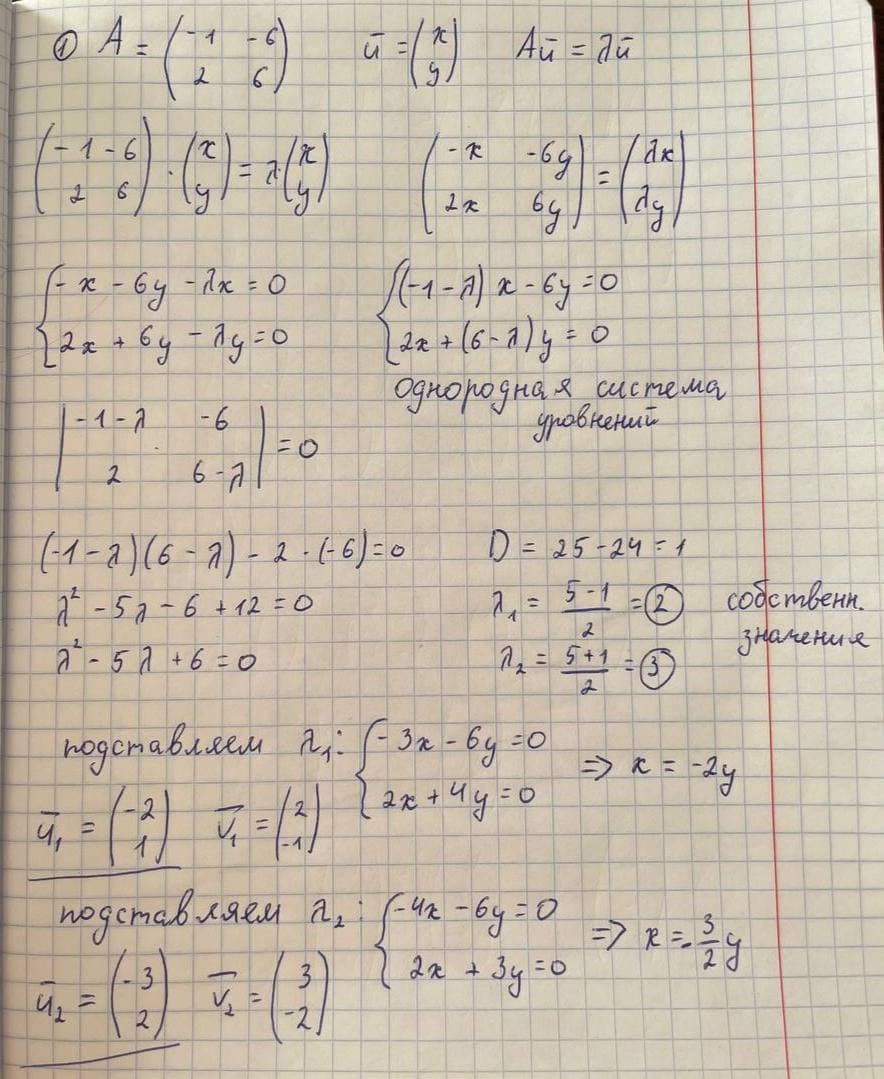 ① A = (-1 -6; 2 6) ū = (x; y) Aū = λū
(-1 -6; 2 6) · (x; y) = λ·(x; y) (-x -6y; 2x 6y) = (λx; λy)
{-x - 6y - λx = 0 {(-1-λ)x - 6y = 0
2x + 6y - λy = 0 2x + (6-λ)y = 0
однородная система
уровнений
|-1-λ -6; 2 6-λ| = 0
(-1-λ)(6-λ) - 2·(-6) = 0 D = 25 - 24 = 1
λ² - 5λ - 6 + 12 = 0 λ₁ = (5-1)/2 = ② собственн.
значения
λ² - 5λ + 6 = 0 λ₂ = (5+1)/2 = ③
подставляем λ₁: {-3x - 6y = 0
2x + 4y = 0 => x = -2y
ū₁ = (-2; 1) v̄₁ = (2; -1)
подставляем λ₂: {-4x - 6y = 0
2x + 3y = 0 => x = -3/2 y
ū₂ = (-3; 2) v̄₂ = (3; -2)